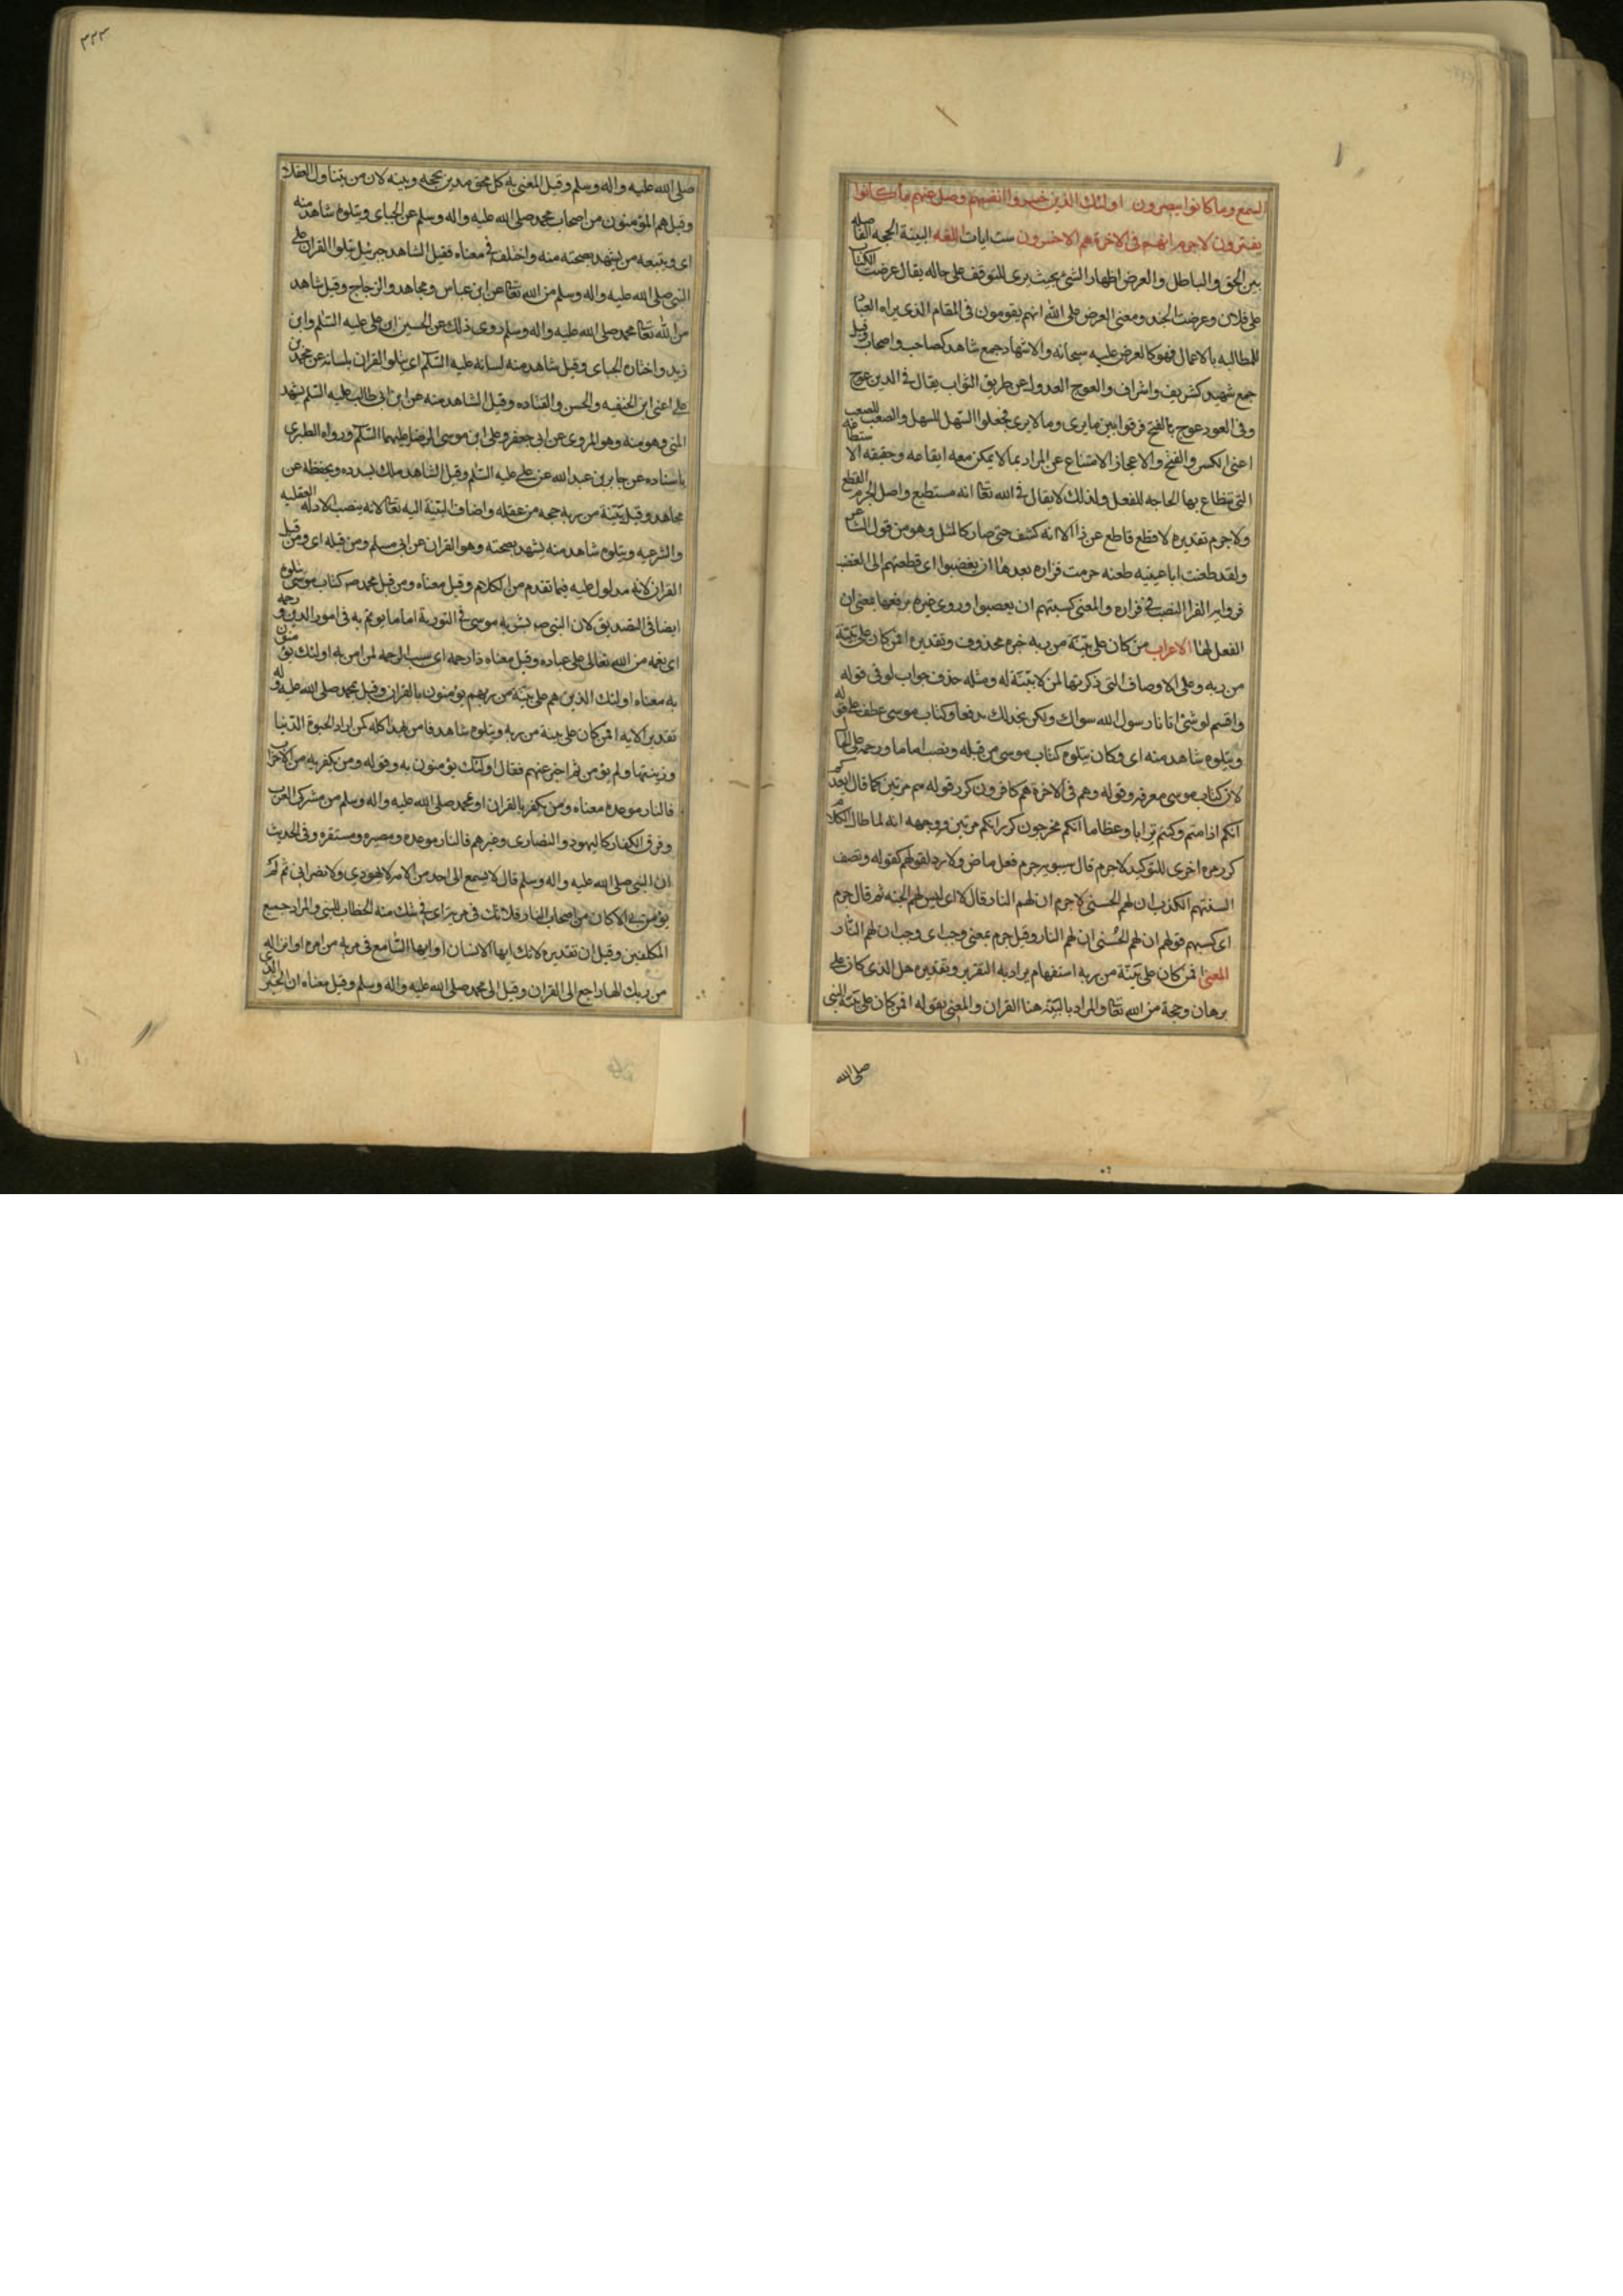 السمع وما كانوا يبصرون اولئك الذين خسروا انفسهم وضل عنهم ما كانوا
يفترون لاجرم انهم فى الاخرة هم الاخسرون ست ايات اللغه البينة الحجه الفاصله
بين الحق والباطل والعرض اظهار الشئ بحيث يرى للتوقف على حاله يقال عرضت الكتاب
على فلان وعرضت الجند ومعنى العرض على الله انهم يقومون فى المقام الذى يراه العباد
للمطالبه بالاعمال فهو كالعرض عليه سبحانه والاشهاد جمع شاهد كصاحب واصحاب وقيل
جمع شهيد كشريف واشراف والعوج العدول عن طريق الثواب يقال فى الدين عوج
وفى العود عوج بالفتح فرقوا بين ما يرى وما لا يرى فجعلوا السهل للسهل والصعب للصعب
اعنى الكسر والفتح والاعجاز الامتناع عن المراد بما لا يمكن معه ايقاعه وحقيقه الاستطاعه
التى تنطاع بها الحاجه للفعل ولذلك لا يقال فى الله تعا انه مستطيع واصل الجرم القطع
ولاجرم تقديره لا قطع قاطع عن ذا الا انه كثف حتى صار كالمثل وهو من قول الشاعر
ولقد طعنت ابا عيينه طعنه جرمت فزاره بعدها ان يغضبوا اى قطعتهم الى الغضب
فرواير الفرا النصب فى فزاره والمعنى كسبتهم ان يغضبوا وروى غيره برفعها بمعنى ان
الفعل لها الاعراب من كان على بينة من ربه خبره محذوف وتقديره افمن كان على بينة
من ربه وعلى الاوصاف التى ذكرتها لمن لا بينة له ومثله حذف جواب لو فى قوله
واقسم لو شئ اتانا رسول الله سواك ولكن نجد لك مدفعا وكتاب موسى عطف على قوله
ويتلوه شاهد منه اى وكان يتلوه كتاب موسى من قبله ونصب اماما ورحمة على الحال
لان كتاب موسى معرفه وقوله وهم فى الاخرة هم كافرون كرر قوله هم مرتين كما قال ايعدكم
انكم اذا متم وكنتم ترابا وعظاما انكم مخرجون كرر انكم مرتين ووجهه انه لما طال الكلام
كرر مره اخرى للتوكيد لاجرم قال سيبويه جرم فعل ماض ولا رد لقولهم كقوله وتصف
السنتهم الكذب ان لهم الحسنى لاجرم ان لهم النار قال لا اى ليس لهم الجنه ثم قال جرم
اى كسبهم قولهم ان لهم الحسنى ان لهم النار وقيل جرم بمعنى وجب اى وجب ان لهم النار
المعنى افمن كان على بينة من ربه استفهام يراد به التقرير وتقديره هل الذى كان على
برهان وحجة من الله تعا والمراد بالبينة هنا القران والمعنى بقوله افمن كان على بينة النبى
صلى الله
صلى الله عليه واله وسلم وقيل المعنى به كل محق مدين بحجه وبينه لان من يتناول العقلاء
وقيل هم المؤمنون من اصحاب محمد صلى الله عليه واله وسلم عن الجباى ويتلوه شاهد منه
اى ويتبعه من يشهد بصحته منه واختلف فى معناه فقيل الشاهد جبرئيل يتلوا القران على
النبى صلى الله عليه واله وسلم من الله تعا عن ابن عباس ومجاهد والزجاج وقيل شاهد
من الله تعا محمد صلى الله عليه واله وسلم روى ذلك عن الحسين ابن على عليه السلم وابن
زيد واختاره الجباى وقيل شاهد منه لسانه عليه السلم اى يتلو القران بلسانه عن محمد بن
على اعنى ابن الحنفيه والحسن والقتاده وقيل الشاهد منه عن ابن ابى طالب عليه السلم يشهد
للنبى وهو منه وهو المروى عن ابى جعفر وعلى ابن موسى الرضا عليهما السلم ورواه الطبرى
باسناده عن جابر بن عبد الله عن على عليه السلم وقيل الشاهد ملك يسدده ويحفظه عن
مجاهد وقيل بينة من ربه حجه من عقله واضاف البينة اليه تعا لانه ينصب الادله العقليه
والشرعيه ويتلوه شاهد منه يشهد بصحته وهو القران عن ابى مسلم ومن قبله اى ومن قبل
القران لانه مدلول عليه فيما تقدم من الكلام وقيل معناه ومن قبل محمد ص كتاب موسى يتلوه
ايضا فى التصديق لان النبى ص بشر به موسى فى التورية اماما يؤتم به فى امور الدين ورحمه
اى نعمه من الله تعالى على عباده وقيل معناه ذا رحمه اى سبب الرحمه لمن امن به اولئك يؤمنون
به معناه اولئك الذين هم على بينة من ربهم يؤمنون بالقران وقيل بمحمد صلى الله عليه واله و
تقدير الايه افمن كان على بينة من ربه ويتلوه شاهد فامن بهذا كله كمن اراد الحيوة الدنيا
وزينتها ولم يؤمن ثم اخبر عنهم فقال اولئك يؤمنون به وقوله ومن يكفر به من الاحزاب
فالنار موعده معناه ومن يكفر بالقران او بمحمد صلى الله عليه واله وسلم من مشركى العرب
وفرق الكفار كاليهود والنصارى وغيرهم فالنار موعده ومصيره ومستقره وفى الحديث
ان النبى صلى الله عليه واله وسلم قال لا يسمع الى احد من الامر لا يهودي ولا نصرانى ثم لم
يؤمن بى الا كان من اصحاب النار فلا تك فى مرية اى فى شك منه الخطاب للنبى والمراد جميع
المكلفين وقيل ان تقديره لا تك ايها الانسان او ايها السامع فى مرية من امره او انزاله
من ربك الها راجع الى القران وقيل الى محمد صلى الله عليه واله وسلم وقيل معناه ان الخبر الذى
٣٢٣